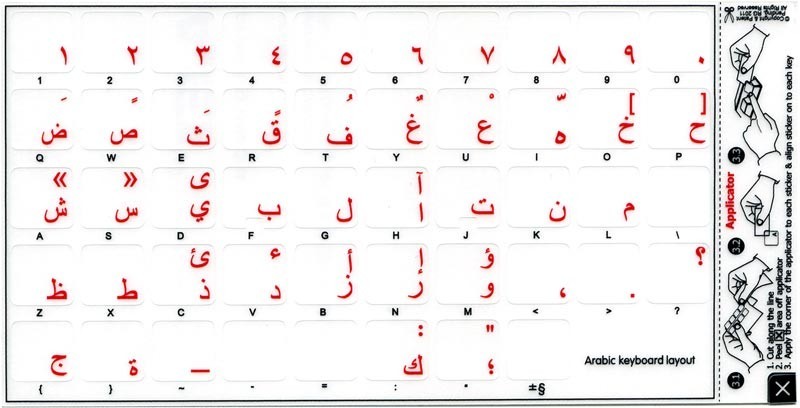 ١ ٢ ٣ ٤ ٥ ٦ ٧ ٨ ٩ ٠
1 2 3 4 5 6 7 8 9 0
[ ]
ض ص ث ق ف غ ع ه خ ح
Q W E R T Y U I O P
« » ى آ
ش س ي ب ل ا ت ن م
A S D F G H J K L \
ئ ء أ إ ؤ ؟
ظ ط ذ د ز ر و ، .
Z X C V B N M < > ?
: "
ج ة ـ ك ؛
Arabic keyboard layout
{ } ~ - = : " ±§
© Copyright & Patent
Pending, RG 2011
All Rights Reserved
3.3
Applicator
3.2
3.1
1. Cut along the line
2. Peel X area off applicator
3. Apply the corner of the applicator to each sticker & align sticker on to each key
X